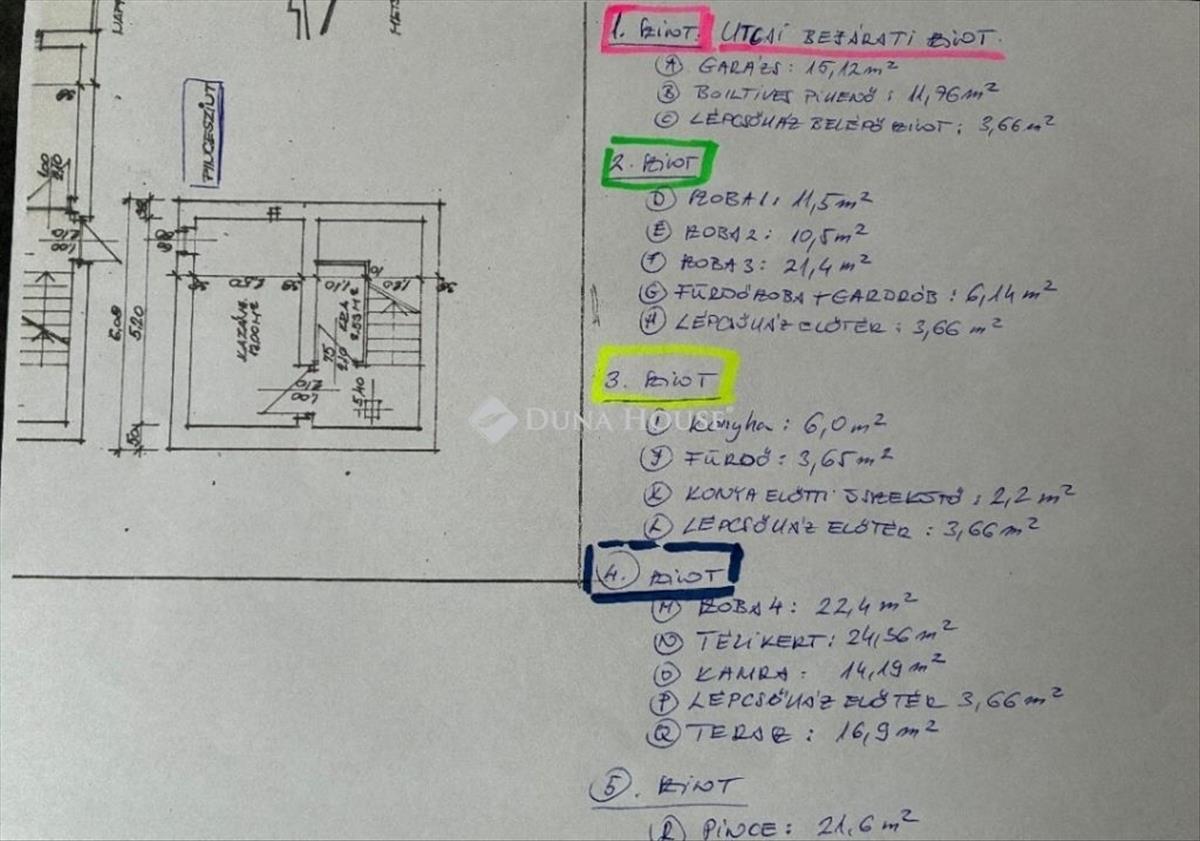 PINCESZINT
1. SZINT. UTCAI BEJÁRATI SZINT.
A GARÁZS: 15,12 m²
B BOILTÍVES PIHENŐ: 11,96 m²
C LÉPCSŐHÁZ BELÉPŐ SZINT: 3,66 m²
2. SZINT
D SZOBA1: 11,5 m²
E SZOBA2: 10,5 m²
F SZOBA3: 21,4 m²
G FÜRDŐSZOBA + GARDRÓB: 6,14 m²
H LÉPCSŐHÁZ ELŐTÉR: 3,66 m²
3. SZINT
I Konyha: 6,0 m²
J FÜRDŐ: 3,65 m²
K KONYA ELŐTTI ÖSSZEKÖTŐ: 2,2 m²
L LÉPCSŐHÁZ ELŐTÉR: 3,66 m²
4. SZINT
M SZOBA4: 22,4 m²
N TÉLIKERT: 24,36 m²
O KAMRA: 14,19 m²
P LÉPCSŐHÁZ ELŐTÉR 3,66 m²
Q TERASZ: 16,9 m²
5. SZINT
R PINCE: 21,6 m²
6.08
5.20
KAZÁN
1.10
1.00
2.10
75
2.10
5.40
DUNA HOUSE